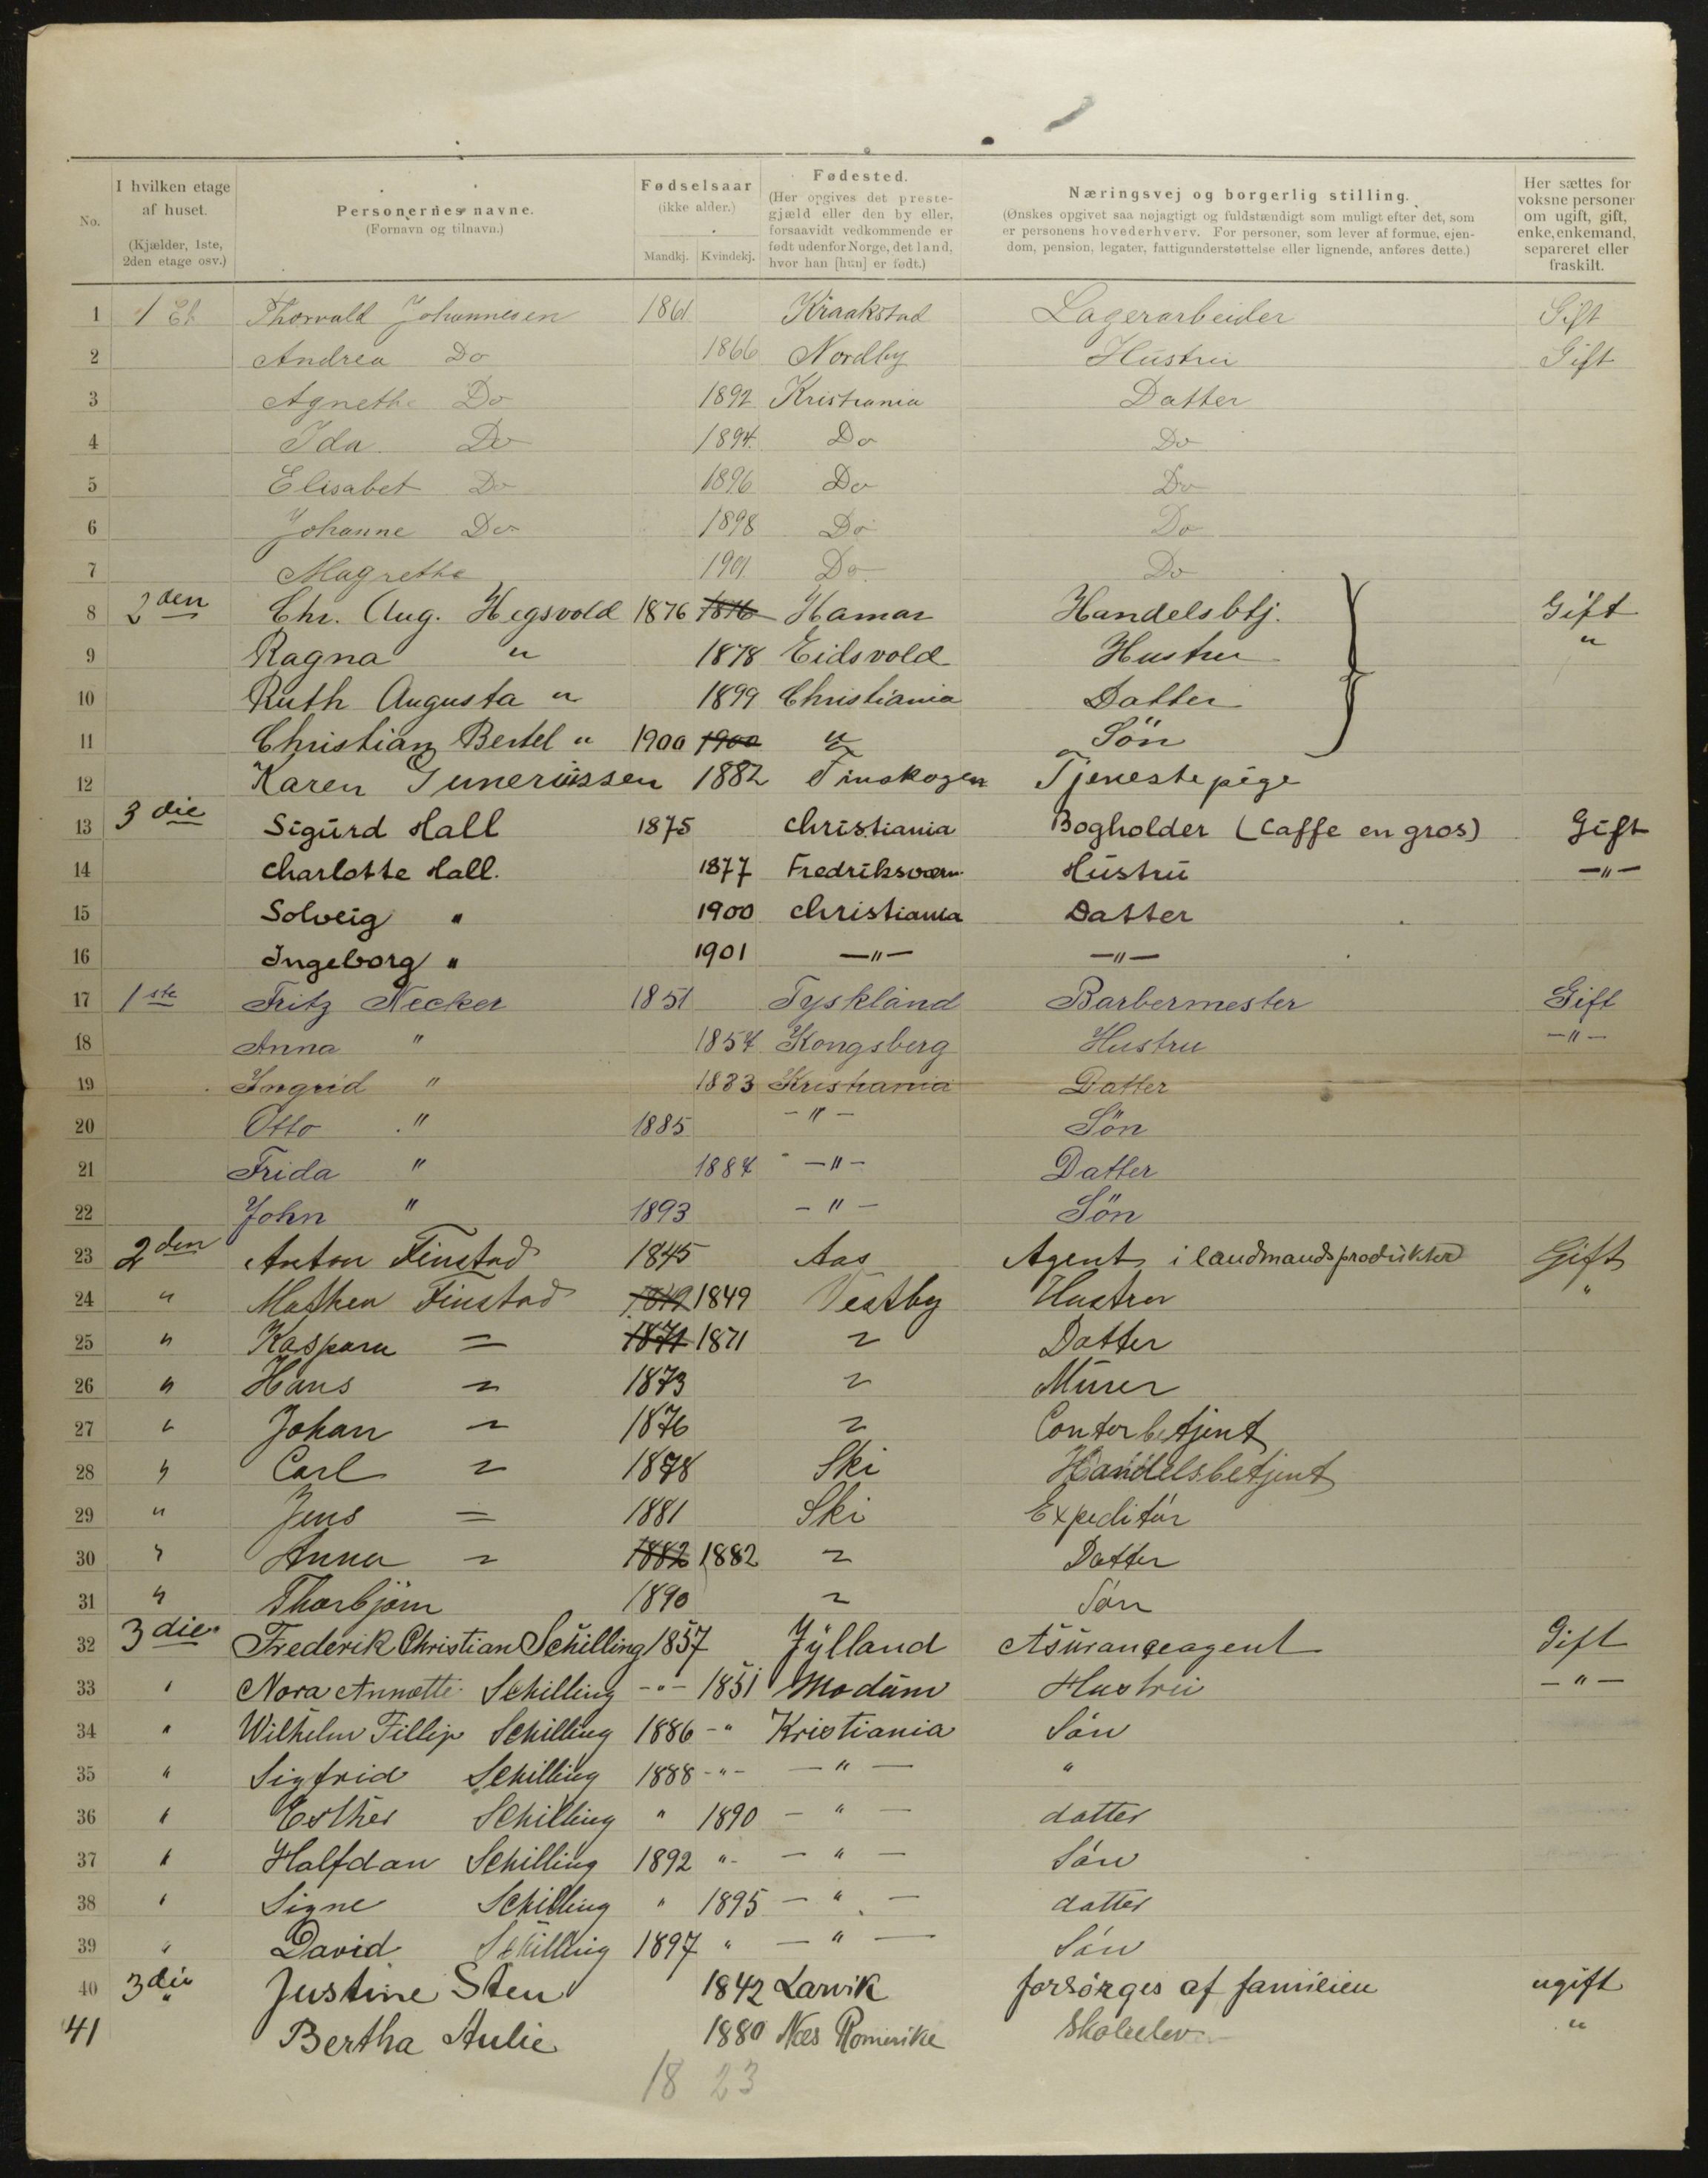 No.
I hvilken etage af huset. (Kjælder, 1ste, 2den etage osv.)
Personernes navne. (Fornavn og tilnavn.)
Fødselsaar (ikke alder.) Mandkj. Kvindekj.
Fødested. (Her opgives det prestegjæld eller den by eller, forsaavidt vedkommende er født udenfor Norge, det land, hvor han [hun] er født.)
Næringsvej og borgerlig stilling. (Ønskes opgivet saa nøjagtigt og fuldstændigt som muligt efter det, som er personens hovederhverv. For personer, som lever af formue, ejendom, pension, legater, fattigunderstøttelse eller lignende, anføres dette.)
Her sættes for voksne personer om ugift, gift, enke, enkemand, separeret eller fraskilt.
1 1 Et Thorvald Johannesen 1861 Kraakstad Lagerarbeider Gift
2 Andrea Do 1866 Nordby Hustru Gift
3 Agnethe Do 1892 Kristiania Datter
4 Ida Do 1894 Do Do
5 Elisabet Do 1896 Do Do
6 Johanne Do 1898 Do Do
7 Magrethe 1901 Do Do
8 2den Chr. Aug. Hegsvold 1876 1876 Hamar Handelsbtj. Gift
9 Ragna " 1878 Eidsvold Hustru "
10 Ruth Augusta " 1899 Christiania Datter
11 Christian Bertel " 1900 1900 " Sön
12 Karen Gunerüssen 1882 Finskogen Tjenestepige
13 3die Sigurd Hall 1875 Christiania Bogholder (Caffe en gros) Gift
14 Charlotte Hall. 1877 Fredriksværn Hüstrü —"—
15 Solveig " 1900 Christiania Datter
16 Ingeborg " 1901 —"— —"—
17 1ste Fritz Necker 1851 Tyskland Barbermester Gift
18 Anna " 1857 Kongsberg Hustru —"—
19 Ingrid " 1883 Kristiania Datter
20 Otto " 1885 —"— Sön
21 Frida " 1887 —"— Datter
22 John " 1893 —"— Sön
23 2den Anton Finstad 1845 Aas Agent i landmandsprodükter Gift
24 " Mathea Finstad 1849 1849 Vestby Hustru "
25 " Kaspara = 1871 1871 " Datter
26 " Hans " 1873 " Mürer
27 " Johan " 1876 " Contorbetjent
28 " Carl " 1878 Ski Handelsbetjent
29 " Jens = 1881 Ski Expeditör
30 " Anna " 1882 1882 " Datter
31 " Thorbjörn 1890 " Sön
32 3die Frederik Christian Schilling 1857 Jÿlland Asürangeagent Gift
33 " Nora Annette Schilling -"- 1851 Modüm Hustrü —"—
34 " Wilhelm Fillip Schilling 1886 -" Kristiania Sön
35 " Sigfrid Schilling 1888 -"- —"— "
36 " Esther Schilling " 1890 —"— datter
37 " Halfdan Schilling 1892 "- —"— Sön
38 " Signe Schilling " 1895 —"— datter
39 " David Schilling 1897 " —"— Sön
40 3die Justine Sten 1842 Larvik forsörges af familien ugift
41 " Bertha Aulie 1880 Næs Romerike Skoleelev "
18 23